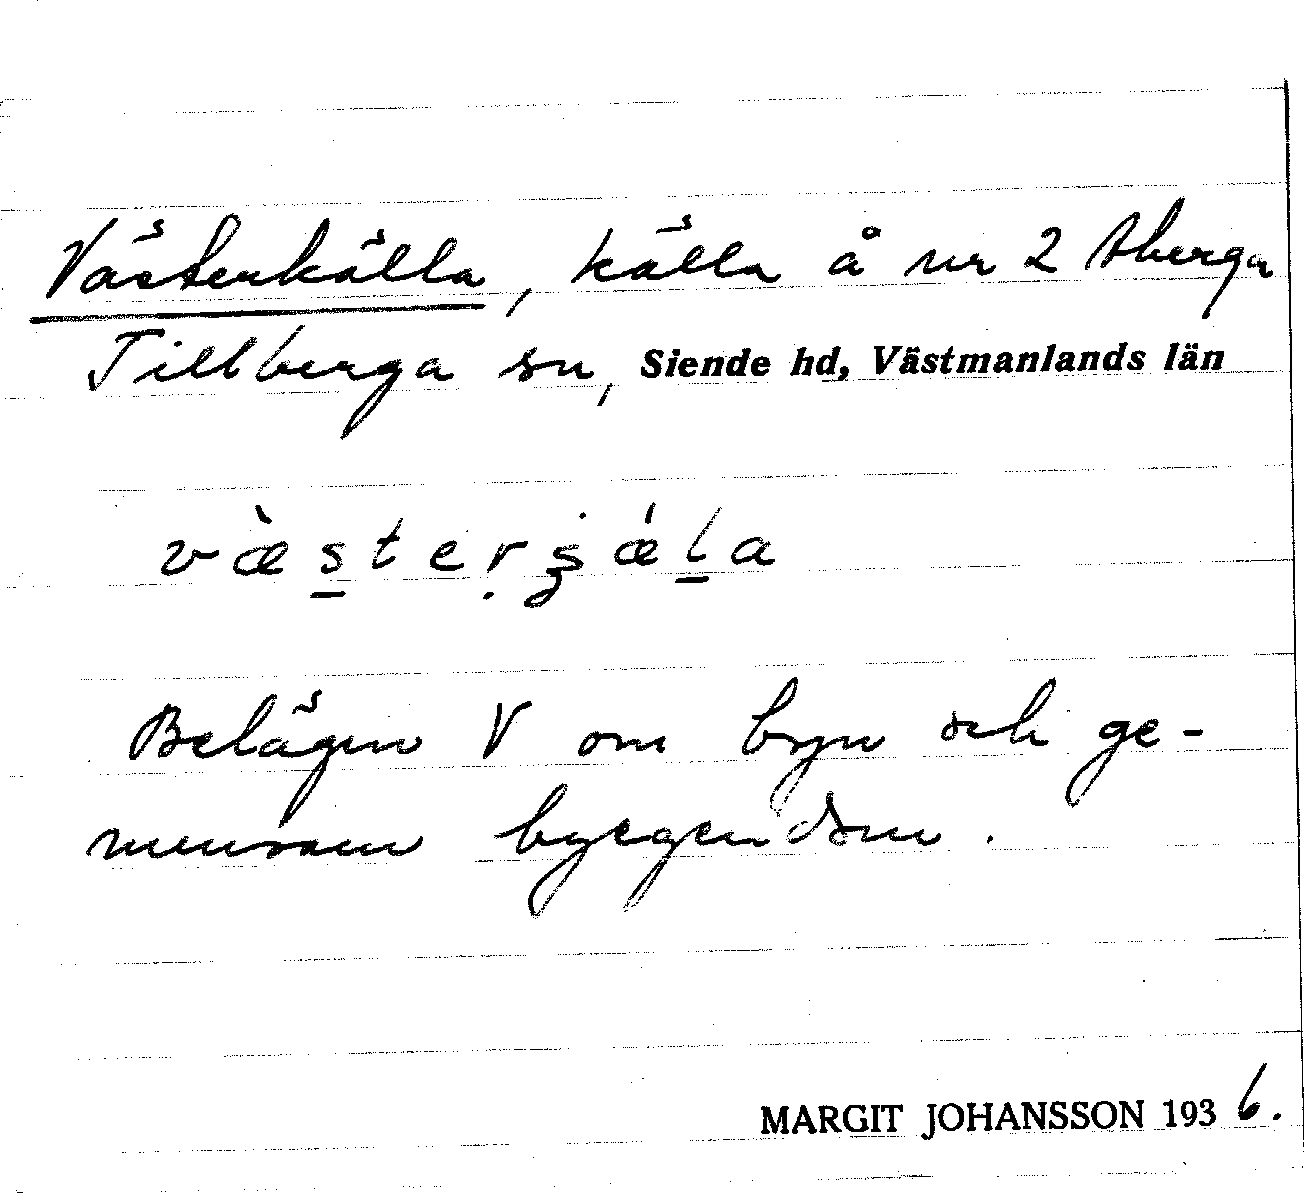 Västerkälla, källa å nr 2 Åberga
Tillberga sn, Siende hd, Västmanlands län
væ̀s̱terʒ́æ̍ḻa
Belägen V om byn och ge-
mensam byegendom.
MARGIT JOHANSSON 1936.